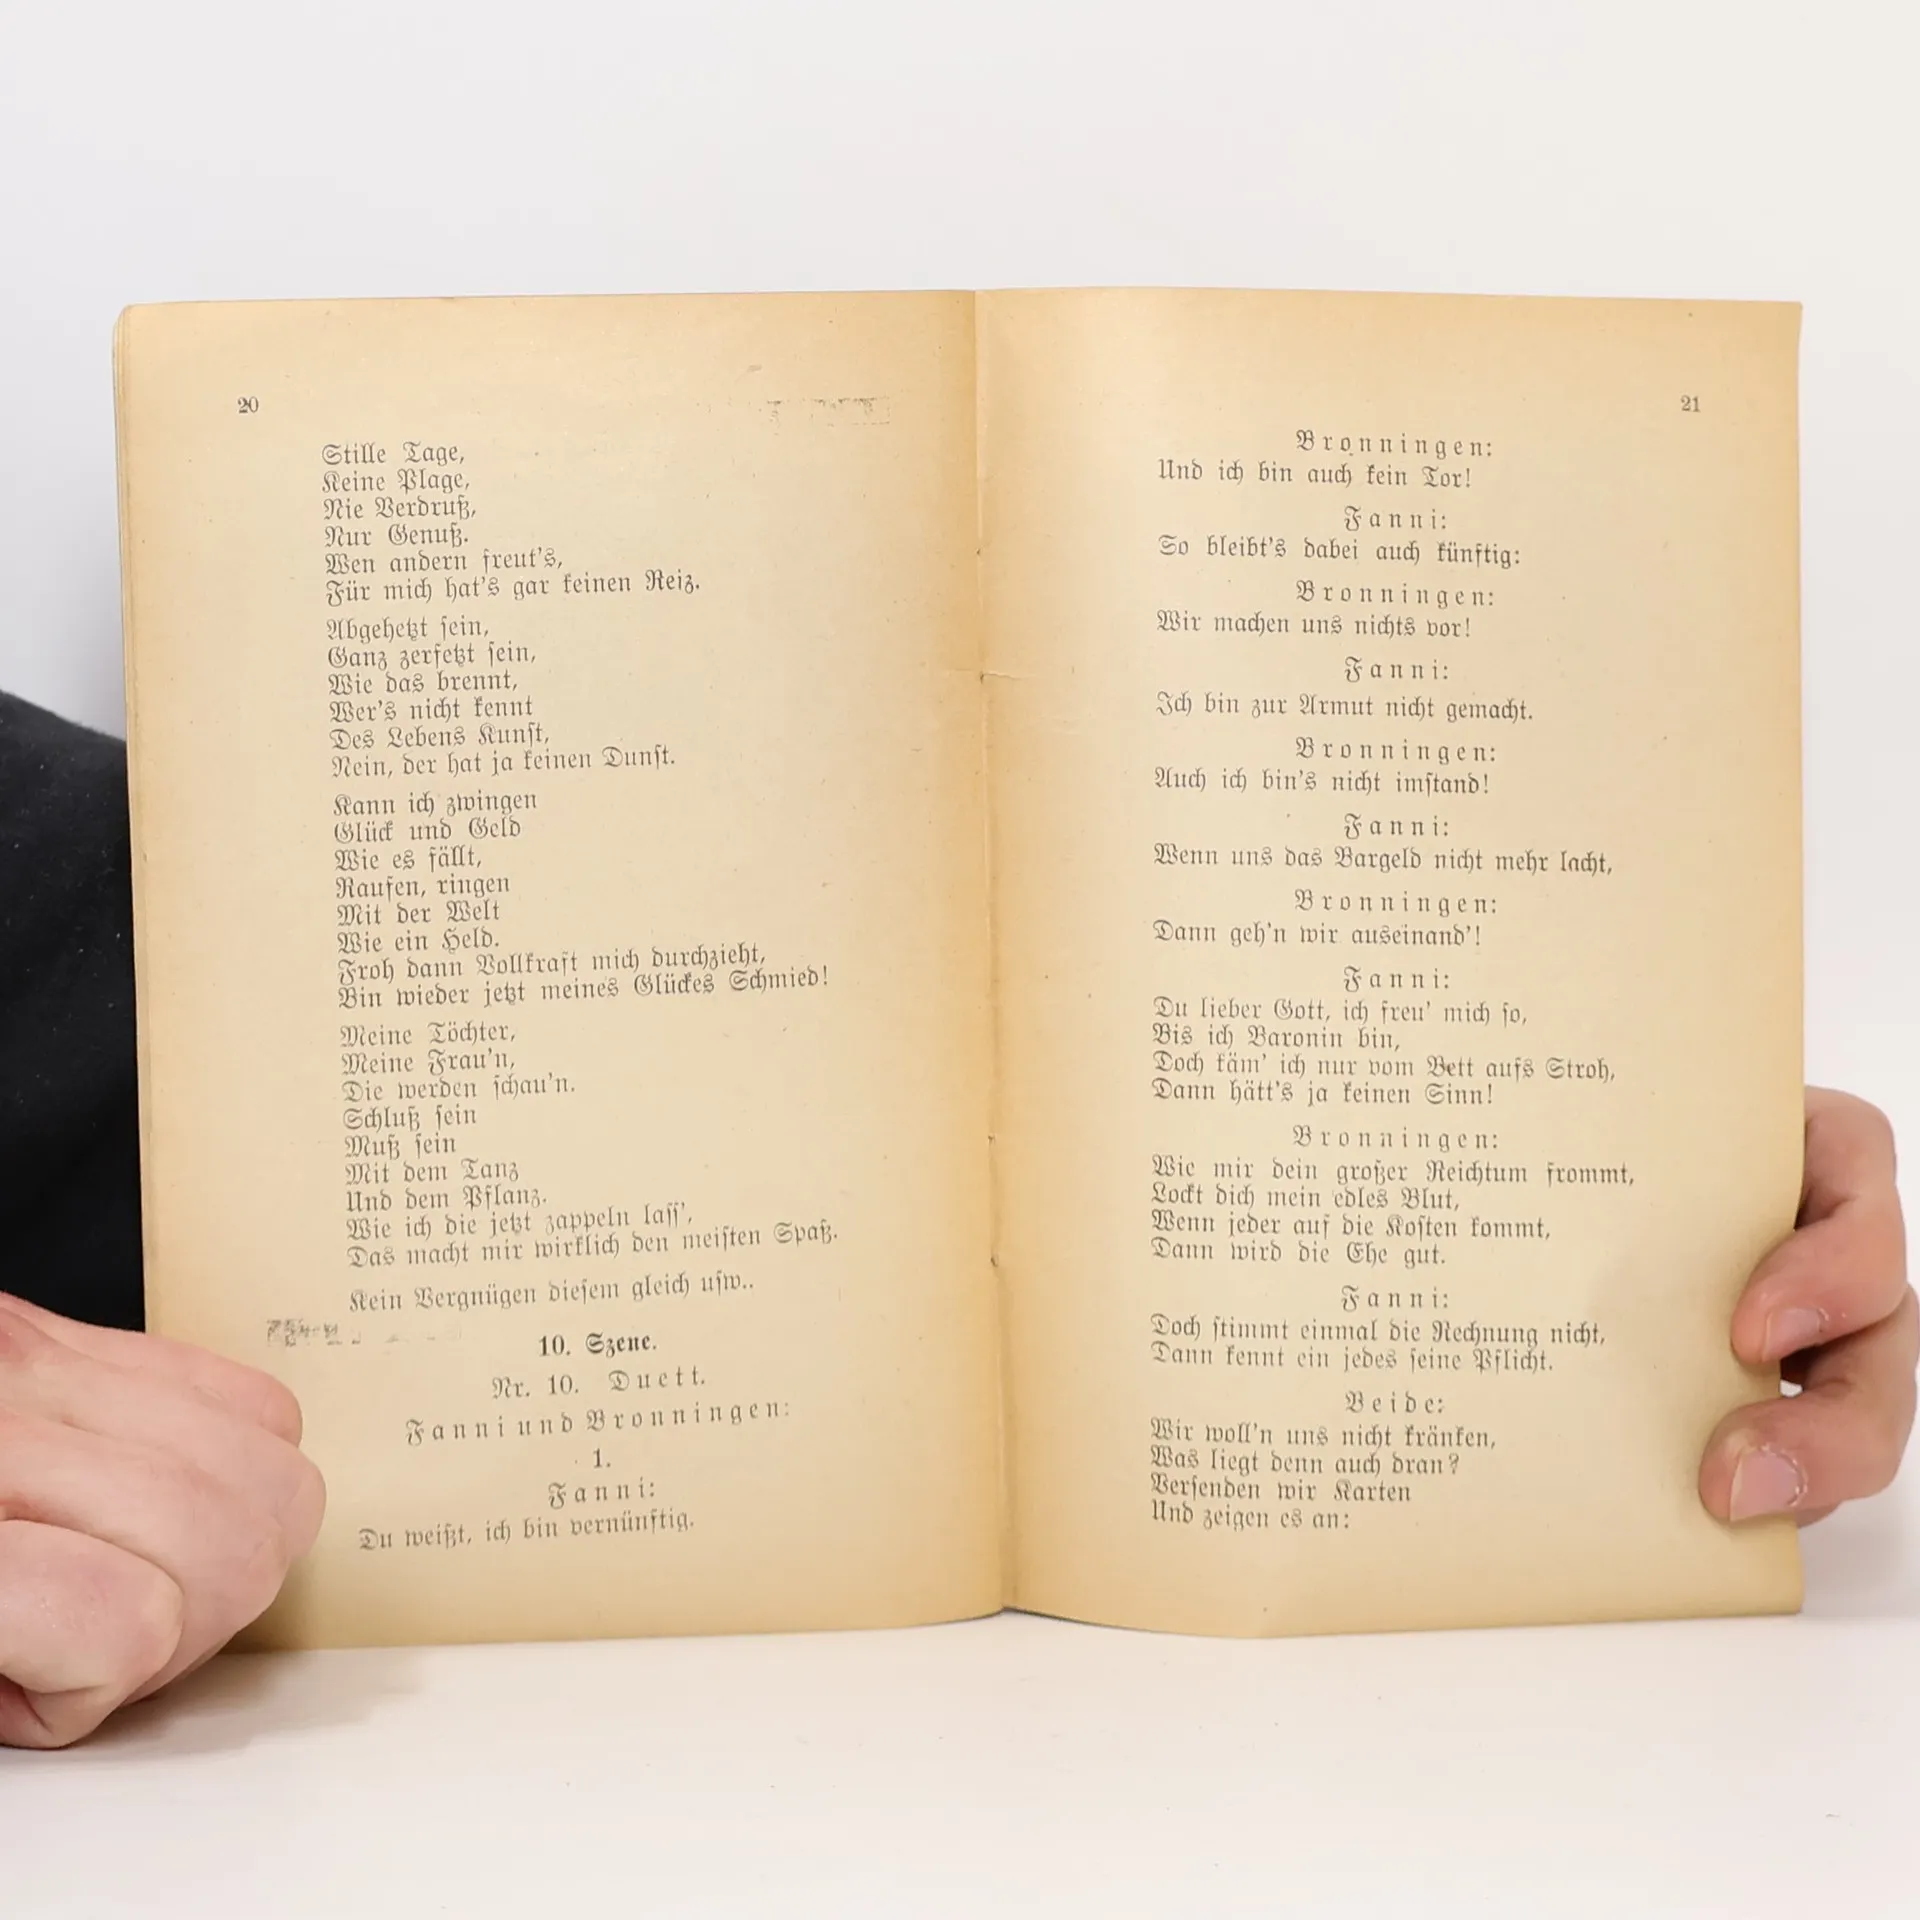 20
Stille Tage,
Keine Plage,
Nie Verdruß,
Nur Genuß.
Wen andern freut's,
Für mich hat's gar keinen Reiz.
Abgehetzt sein,
Ganz zerfetzt sein,
Wie das brennt,
Wer's nicht kennt
Des Lebens Kunst,
Nein, der hat ja keinen Dunst.
Kann ich zwingen
Glück und Geld
Wie es fällt,
Raufen, ringen
Mit der Welt
Wie ein Held.
Froh dann Vollkraft mich durchzieht,
Bin wieder jetzt meines Glückes Schmied!
Meine Töchter,
Meine Frau'n,
Die werden schau'n.
Schluß sein
Muß sein
Mit dem Tanz
Und dem Pflanz.
Wie ich die jetzt zappeln lass',
Das macht mir wirklich den meisten Spaß.
Kein Vergnügen diesem gleich usw..
10. Szene.
Nr. 10. Duett.
Fanni und Bronningen:
1.
Fanni:
Du weißt, ich bin vernünftig.
21
Bronningen:
Und ich bin auch kein Tor!
Fanni:
So bleibt's dabei auch künftig:
Bronningen:
Wir machen uns nichts vor!
Fanni:
Ich bin zur Armut nicht gemacht.
Bronningen:
Auch ich bin's nicht imstand!
Fanni:
Wenn uns das Bargeld nicht mehr lacht,
Bronningen:
Dann geh'n wir auseinand'!
Fanni:
Du lieber Gott, ich freu' mich so,
Bis ich Baronin bin,
Doch käm' ich nur vom Bett aufs Stroh,
Dann hätt's ja keinen Sinn!
Bronningen:
Wie mir dein großer Reichtum frommt,
Lockt dich mein edles Blut,
Wenn jeder auf die Kosten kommt,
Dann wird die Ehe gut.
Fanni:
Doch stimmt einmal die Rechnung nicht,
Dann kennt ein jedes seine Pflicht.
Beide:
Wir woll'n uns nicht kränken,
Was liegt denn auch dran?
Versenden wir Karten
Und zeigen es an: